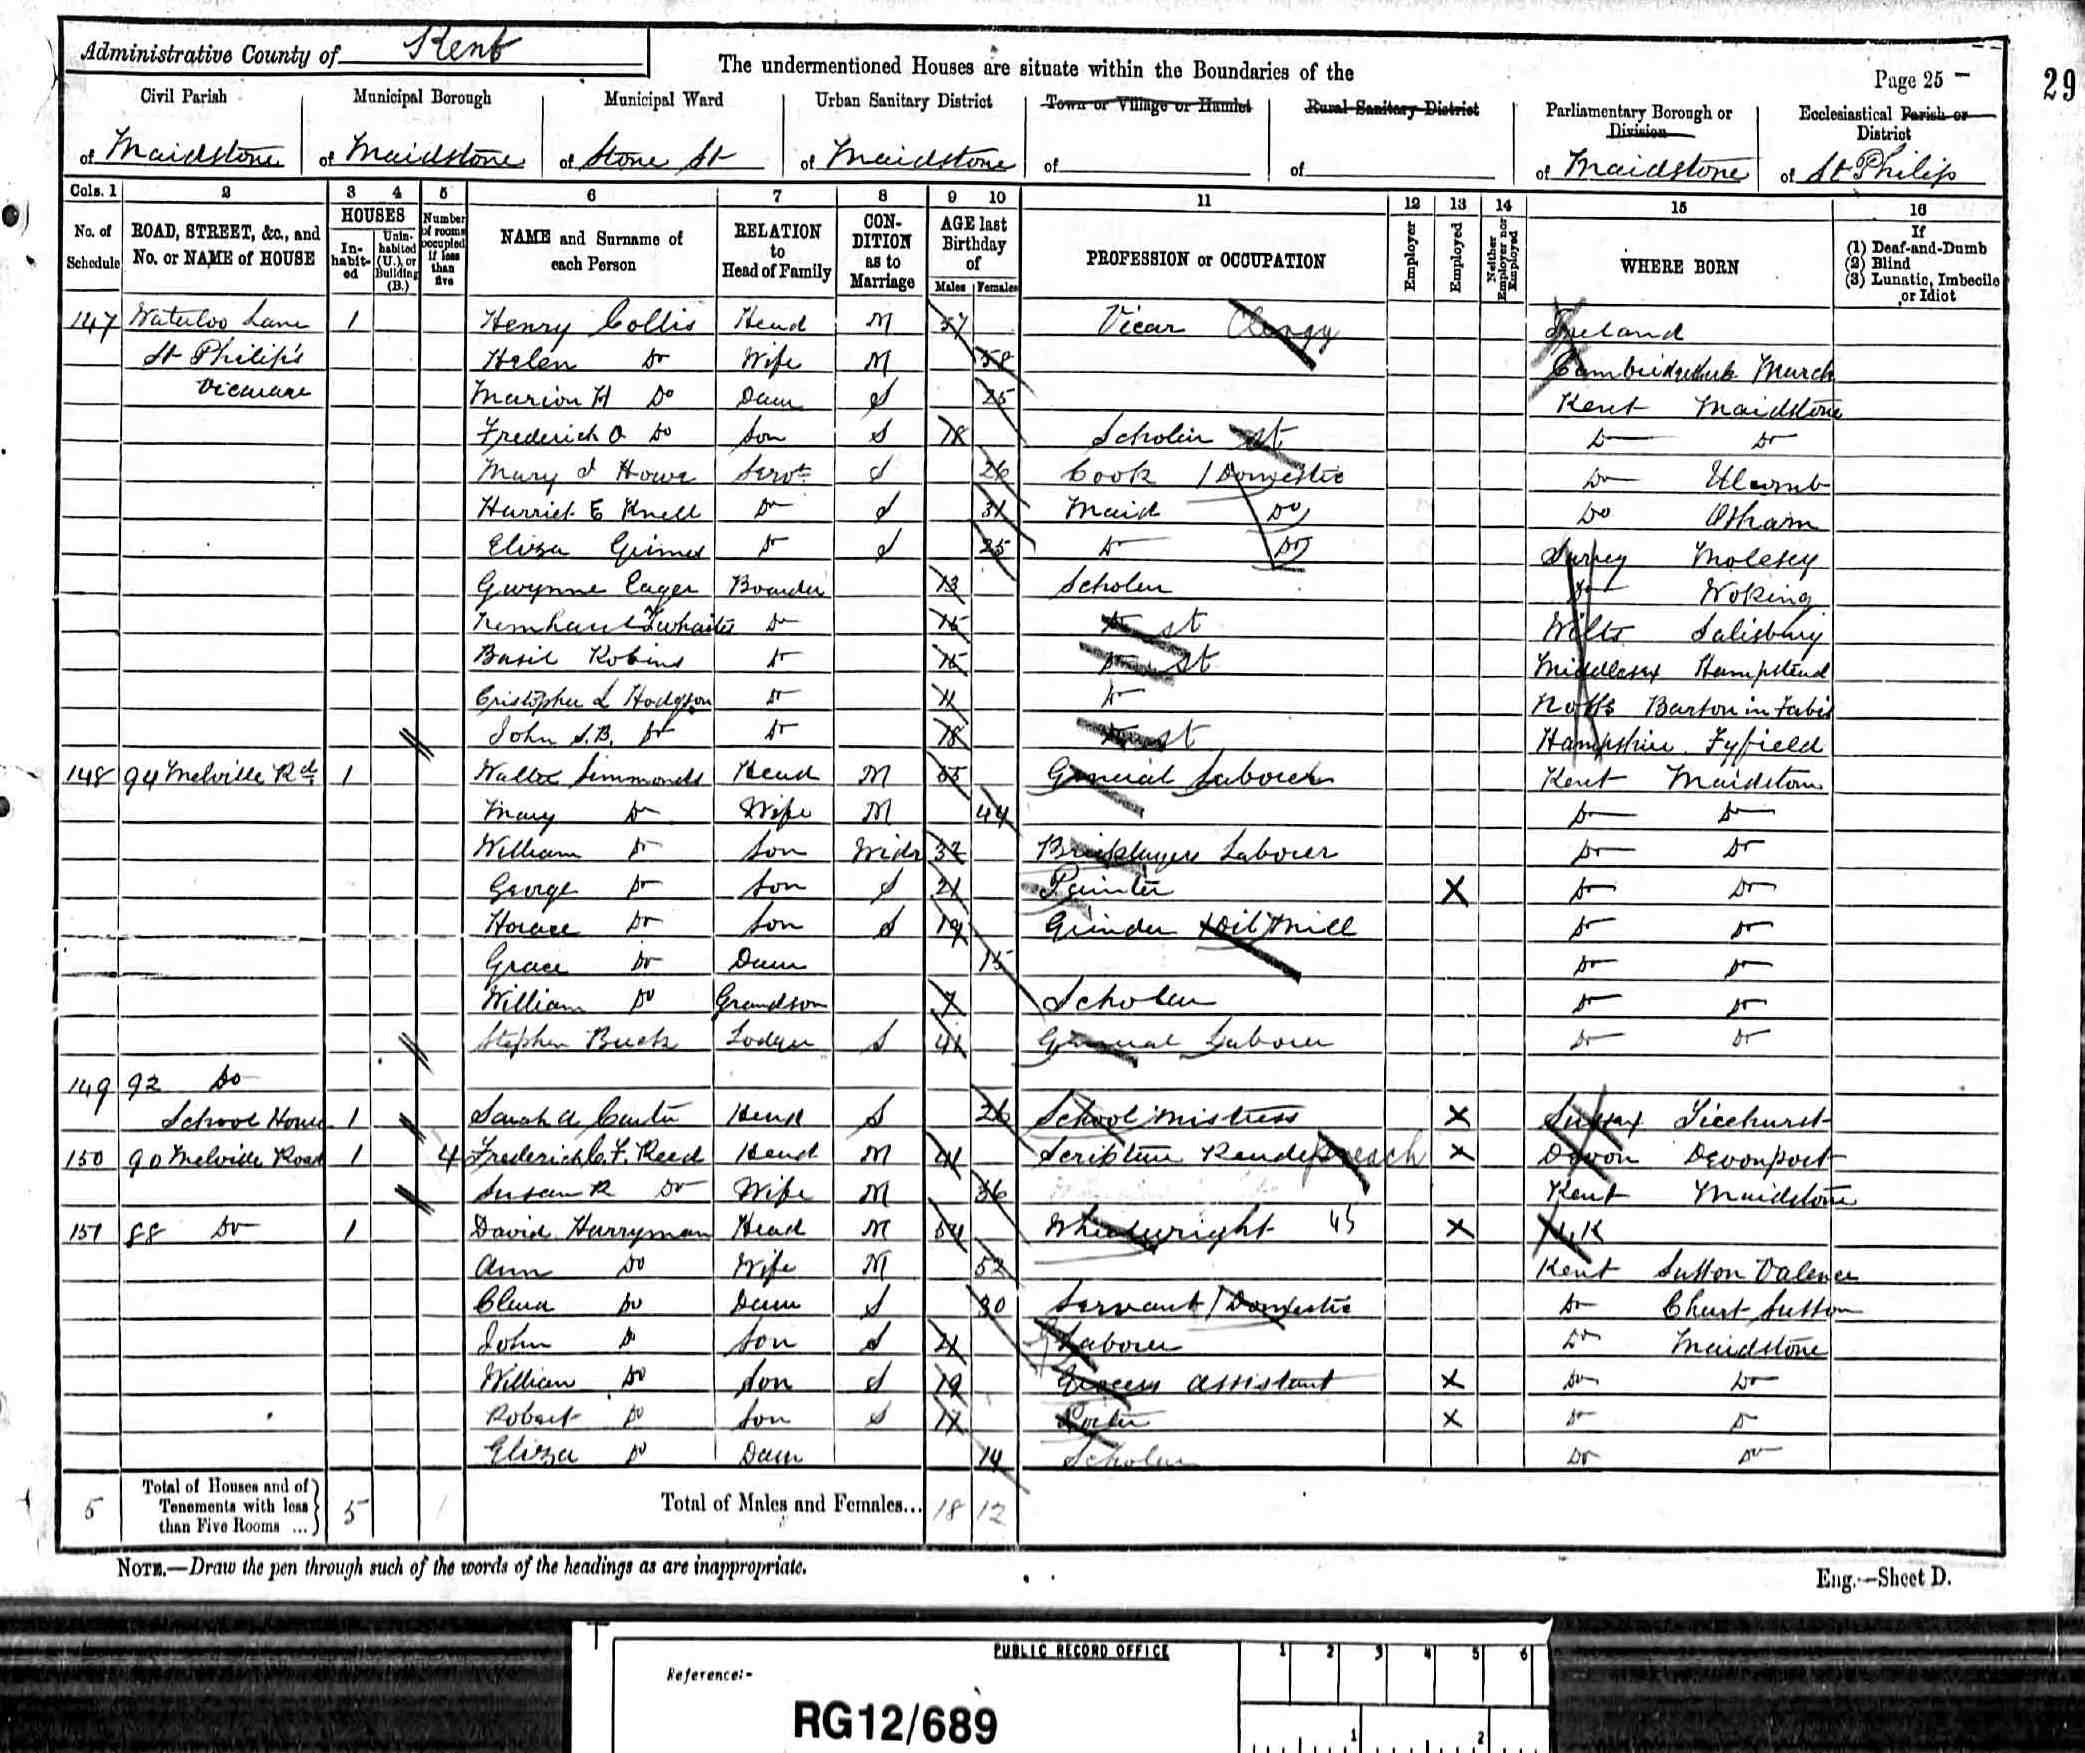 Administrative County of Kent
The undermentioned Houses are situate within the Boundaries of the
Page 25
29
Civil Parish Municipal Borough Municipal Ward Urban Sanitary District Town or Village or Hamlet Rural Sanitary District Parliamentary Borough or Division Ecclesiastical Parish or District
of Maidstone of Maidstone of Stone St of Maidstone of of of Maidstone of St Philip
Cols. 1 2 3 4 5 6 7 8 9 10 11 12 13 14 15 16
No. of Schedule ROAD, STREET, &c., and No. or NAME of HOUSE HOUSES Inhabited Uninhabited (U.), or Building (B.) Number of rooms occupied if less than five NAME and Surname of each Person RELATION to Head of Family CONDITION as to Marriage AGE last Birthday of Males Females PROFESSION or OCCUPATION Employer Employed Neither Employer nor Employed WHERE BORN If (1) Deaf-and-Dumb (2) Blind (3) Lunatic, Imbecile or Idiot
147 Waterloo Lane 1 Henry Collis Head M 57 Vicar Clergy Ireland
St Philip's Helen Do Wife M 58 Cambridgeshire March
Vicarage Marion H Do Daur S 25 Kent Maidstone
Frederick O Do Son S 18 Scholar st Do Do
Mary J Howe Servt S 26 Cook / Domestic Do Ulcomb
Harriet E Knell Do S 31 Maid Do Do Otham
Eliza Grimes Do S 25 Do Do Surrey Molesey
Gwynne Eager Boarder 13 Scholar Do Woking
Do 15 Do st Wilts Salisbury
Basil Robins Do 15 Do st Middlesex Hampstead
Cristopher L Hodgson Do 11 Do Notts Barton in Fabis
John S.B. Do Do 18 Do st Hampshire Fyfield
148 94 Melville Rd 1 Walter Simmonds Head M 55 General Labourer Kent Maidstone
Mary Do Wife M 44 Do Do
William Do Son Widr 32 Bricklayers Labourer Do Do
George Do Son S 21 Painter X Do Do
Horace Do Son S 19 Grinder Oil Mill Do Do
Grace Do Daur 15 Do Do
William Do Grandson 7 Scholar Do Do
Stephen Buck Lodger S 41 General Labourer Do Do
149 92 Do
School House 1 Sarah A Carter Head S 26 School Mistress X Sussex Ticehurst
150 90 Melville Road 1 4 Frederick C. F. Reed Head M 41 Scripture Reader Preach X Devon Devonport
Susan R Do Wife M 36 Kent Maidstone
151 88 Do 1 David Harryman Head M 54 Wheelwright 45 X N.K
Ann Do Wife M 52 Kent Sutton Valence
Clara Do Daur S 30 Servant / Domestic Do Chart Sutton
John D Son S 21 Labourer Do Maidstone
William Do Son S 19 Grocers Assistant X Do Do
Robert Do Son S 17 Porter X Do Do
Eliza Do Daur 14 Scholar Do Do
5 Total of Houses and of Tenements with less than Five Rooms ... 5 1 Total of Males and Females... 18 12
NOTE.—Draw the pen through such of the words of the headings as are inappropriate.
Eng.—Sheet D.
PUBLIC RECORD OFFICE
1 2 3 4 5 6
Reference:-
RG12/689
1 2